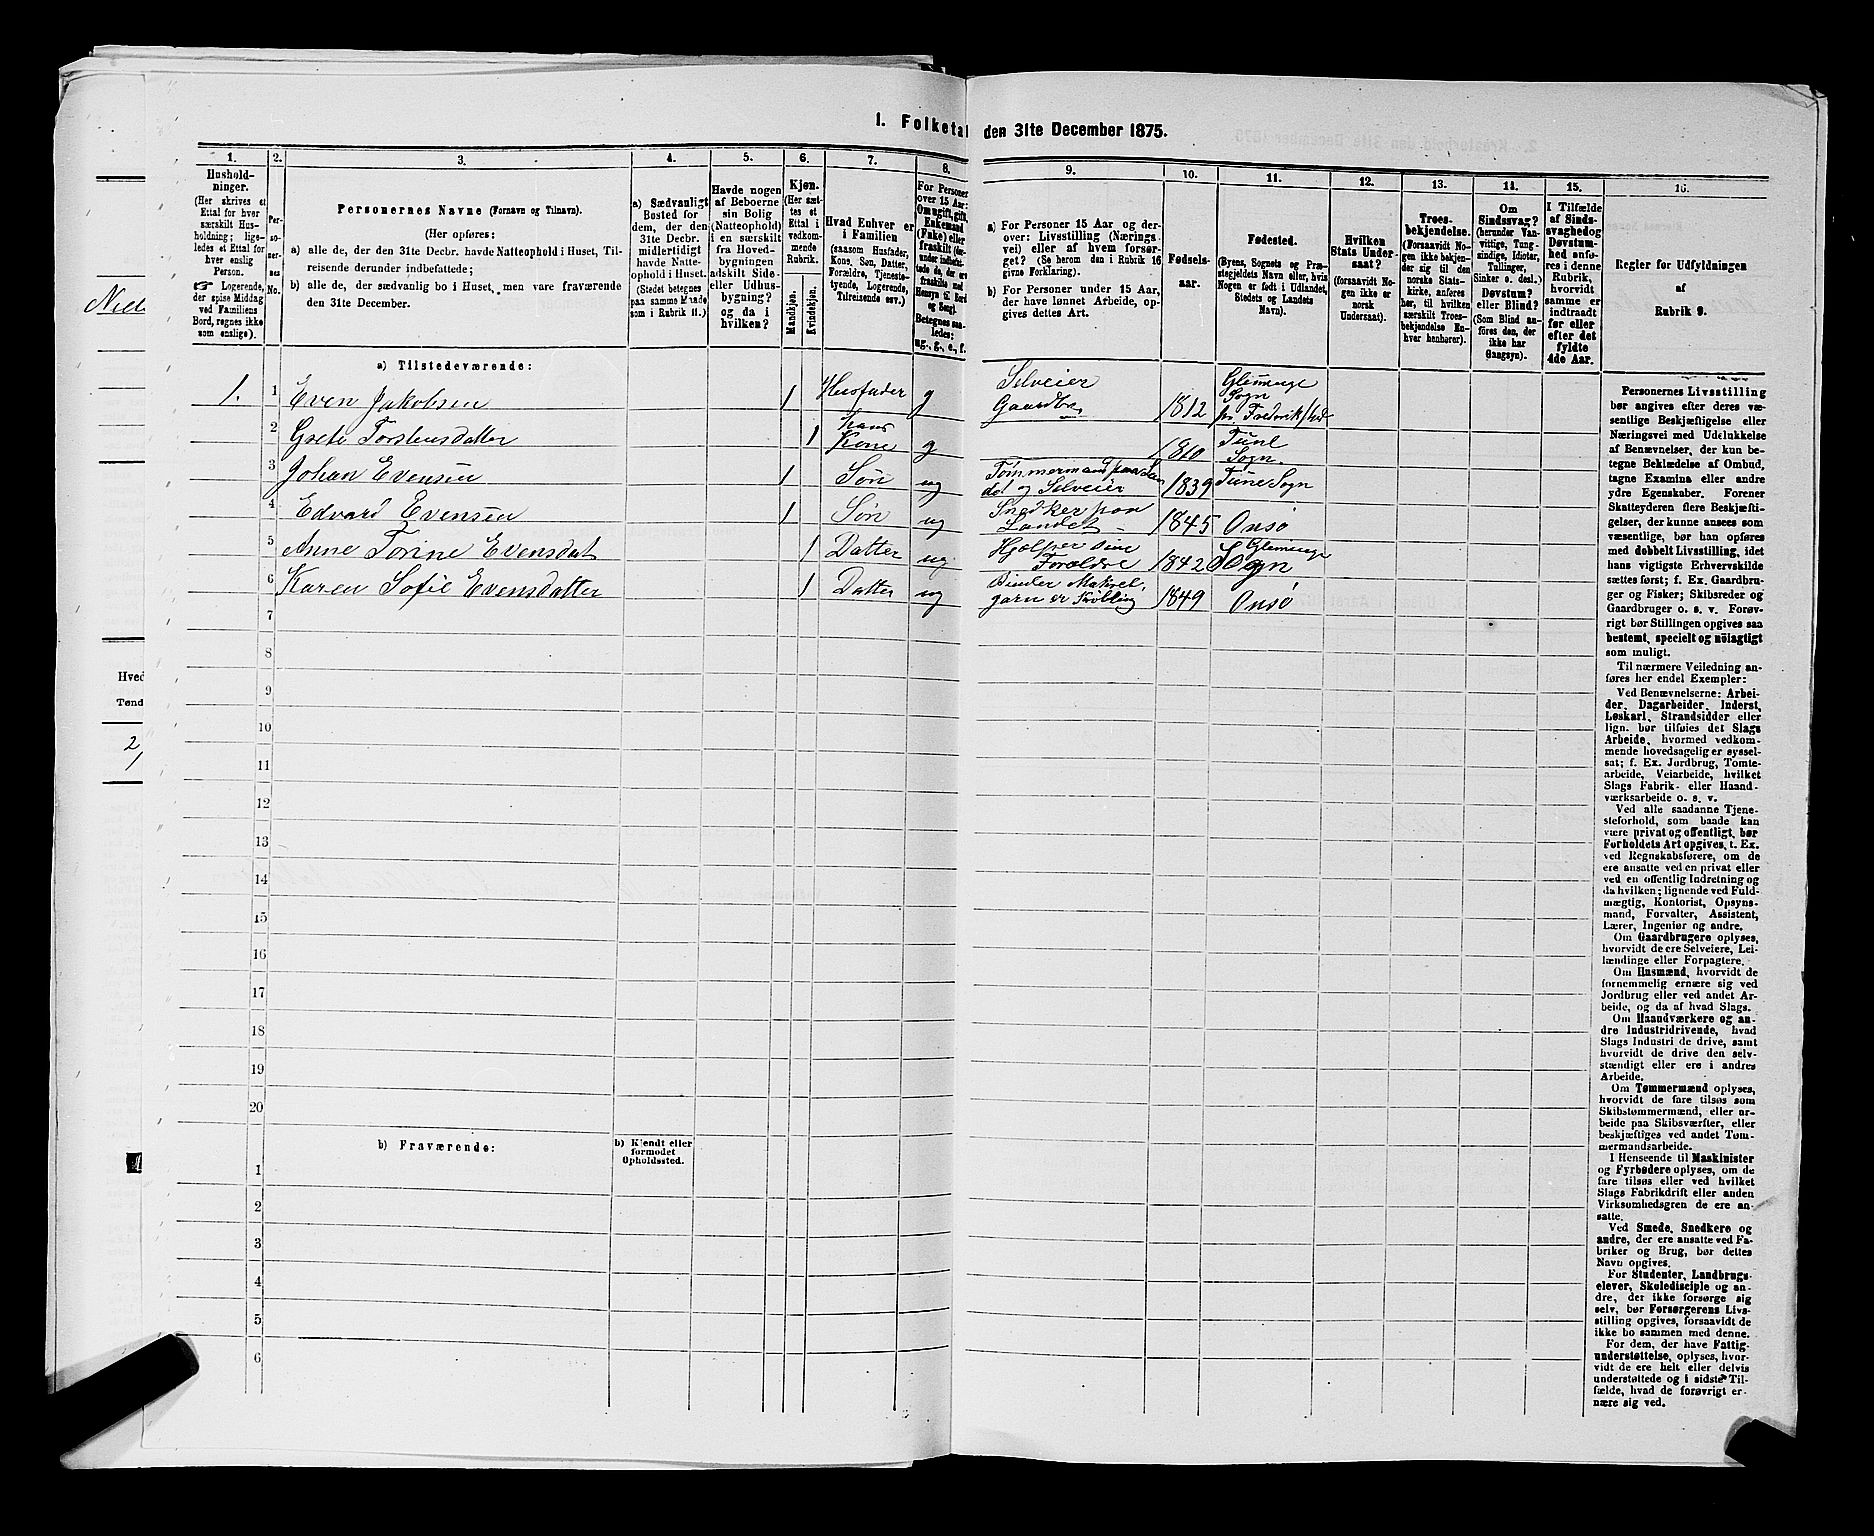 I. Folketal den 31te December 1875.
1. 2. 3. 4. 5. 6. 7. 8. 9. 10. 11. 12. 13. 14. 15. 16.
Hushold-
ninger.
(Her skrives et
Ettal for hver
særskilt Hus-
holdning; lige-
ledes et Ettal for
hver enslig
Person.
☞ Logerende,
der spise Middag
ved Familiens
Bord, regnes ikke
som enslige).
Per-
so-
ner-
nes
No.
Personernes Navne (Fornavn og Tilnavn).
(Her opføres:
a) alle de, der den 31te Decbr. havde Natteophold i Huset, Til-
reisende derunder indbefattede;
b) alle de, der sædvanlig bo i Huset, men vare fraværende
den 31te December.
a) Sædvanligt
Bosted for
dem, der den
31te Decbr.
midlertidigt
havde Natte-
ophold i Huset.
(Stedet betegnes
paa samme Maade
som i Rubrik 11.)
Havde nogen
af Beboerne
sin Bolig
(Natteophold)
i en særskilt
fra Hoved-
bygningen
adskilt Side-
eller Udhus-
bygning?
og da i
hvilken?
Kjøn.
(Her sæt-
tes et
Ettal i
vedkom-
mende
Rubrik.
Mandkjøn.
Kvindekjøn.
Hvad Enhver er
i Familien
(saasom Husfader,
Kone, Søn, Datter,
Forældre, Tjeneste-
tyende, Logerende,
Tilreisende osv.)
For Personer
over 15 Aar:
Om ugift, gift,
Enkemand
(Enke) eller
fraskilt (der-
under indbefat-
tede de, der ere
fraskilte med
Hensyn til Bord
og Seng).
Betegnes saa-
ledes:
ug., g., e., f.
a) For Personer 15 Aar og der-
over: Livsstilling (Nærings
vei) eller af hvem forsør-
get? (Se herom den i Rubrik 16
givne Forklaring).
b) For Personer under 15 Aar,
der have lønnet Arbeide, op-
gives dettes Art.
Fødsels-
aar.
Fødested.
(Byens, Sognets og Præ-
stegjeldets Navn eller, hvis
Nogen er født i Udlandet,
Stedets og Landets
Navn).
Hvilken
Stats Under-
saat?
(forsaavidt No-
gen ikke er
norsk
Undersaat).
Troes-
bekjendelse.
(Forsaavidt No-
gen ikke bekjen-
der sig til den
norske Stats-
kirke, anføres
her, til hvilken
særskilt Troes-
bekjendelse En-
hver henhører).
Om
Sindssvag?
(herunder Van-
vittige, Tung-
sindige, Idioter,
Tullinger,
Sinker o. desl.)
Døvstum?
eller Blind?
(Som Blind an-
føres den, der
ikke har
Gangsyn).
I Tilfælde
af Sinds-
svaghed og
Døvstum-
hed anfø-
res i denne
Rubrik,
hvorvidt
samme er
indtraadt
før eller
efter det
fyldte
4de Aar.
Regler for Udfyldningen
af
Rubrik 9.
a) Tilstedeværende:
1. 1 Even Jakobsen 1 Husfader g Selveier Gaardbr 1812 Glemminge Sogn pr. Fredrikshld
2 Grete Torstensdatter 1 hans Kone g 1810 Tune Sogn
3 Johan Evensen 1 Søn ug Tømmermand paa Lan det og Selveier 1839 Tune Sogn
4 Edvard Evensen 1 Søn ug Snedker paa Landet 1845 Onsö
5 Anne Torine Evensdat 1 Datter ug Hjælper sine Forældre 1842 Glemminge Sogn
6 Karen Sofie Evensdatter 1 Datter ug Binder Makrel- garn 1849 Onsö
7
8
9
10
11
12
13
14
15
16
17
18
19
20
b) Fraværende:
b) Kjendt eller
formodet
Opholdssted.
1
2
3
4
5
6
Personernes Livsstilling
bør angives efter deres væ-
sentlige Beskjæftigelse eller
Næringsvei med Udelukkelse
af Benævnelser, der kun be-
tegne Beklædelse af Ombud,
tagne Examina eller andre
ydre Egenskaber. Forener
Skatteyderen flere Beskjæfti-
gelser, der kunne ansees som
væsentlige, bør han opføres
med dobbelt Livsstilling, idet
hans vigtigste Erhvervskilde
sættes først; f. Ex. Gaardbru-
ger og Fisker; Skibsreder og
Gaardbruger o. s. v. Forøv-
rigt bør Stillingen opgives saa
bestemt, specielt og nöiagtigt
som muligt.
Til nærmere Veiledning an-
føres her endel Exempler:
Ved Benævnelserne: Arbei-
der, Dagarbeider, Inderst,
Løskarl, Strandsidder eller
lign. bør tilføies det Slags
Arbeide, hvormed vedkom-
mende hovedsagelig er syssel-
sat; f. Ex. Jordbrug, Tomte-
arbeide, Veiarbeide, hvilket
Slags Fabrik- eller Haand-
værksarbeide o. s. v.
Ved alle saadanne Tjene-
steforhold, som baade kan
være privat og offentligt, bør
Forholdets Art opgives, t. Ex.
ved Regnskabsførere, om de
ere ansatte ved en privat eller
ved en offentlig Indretning og
da hvilken; lignende ved Fuld-
mægtig, Kontorist, Opsyns-
mand, Forvalter, Assistent,
Lærer, Ingeniør og andre.
Om Gaardbrugere oplyses,
hvorvidt de ere Selveiere, Lei-
lændinge eller Forpagtere.
Om Husmænd, hvorvidt de
fornemmelig ernære sig ved
Jordbrug eller ved andet Ar-
beide, og da af hvad Slags.
Om Haandværkere og an-
dre Industridrivende, hvad
Slags Industri de drive, samt
hvorvidt de drive den selv-
stændigt eller ere i andres
Arbeide.
Om Tømmermænd oplyses,
hvorvidt de fare tilsøs som
Skibstømmermænd, eller ar-
beide paa Skibsværfter, eller
beskjæftiges ved andet Tøm-
mermandsarbeide.
I Henseende til Maskinister
og Fyrbødere oplyses, om de
fare tilsøs eller ved hvilket
Slags Fabrikdrift eller anden
Virksomhedsgren de ere an-
satte.
Ved Smede, Snedkere og
andre, der ere ansatte ved Fa-
briker og Brug, bør dettes
Navn opgives.
For Studenter, Landbrugs-
elever, Skoledisciple og an-
dre, der ikke forsørge sig
selv, bør Forsørgerens Livs-
stilling opgives, forsaavidt de
ikke bo sammen med denne.
For dem, der have Fattig-
understøttelse, oplyses, hvor-
vidt de ere helt eller delvis
understøttede og i sidste Til-
fælde, hvad de forøvrigt er-
nære sig ved.
Hved
Tønd
2